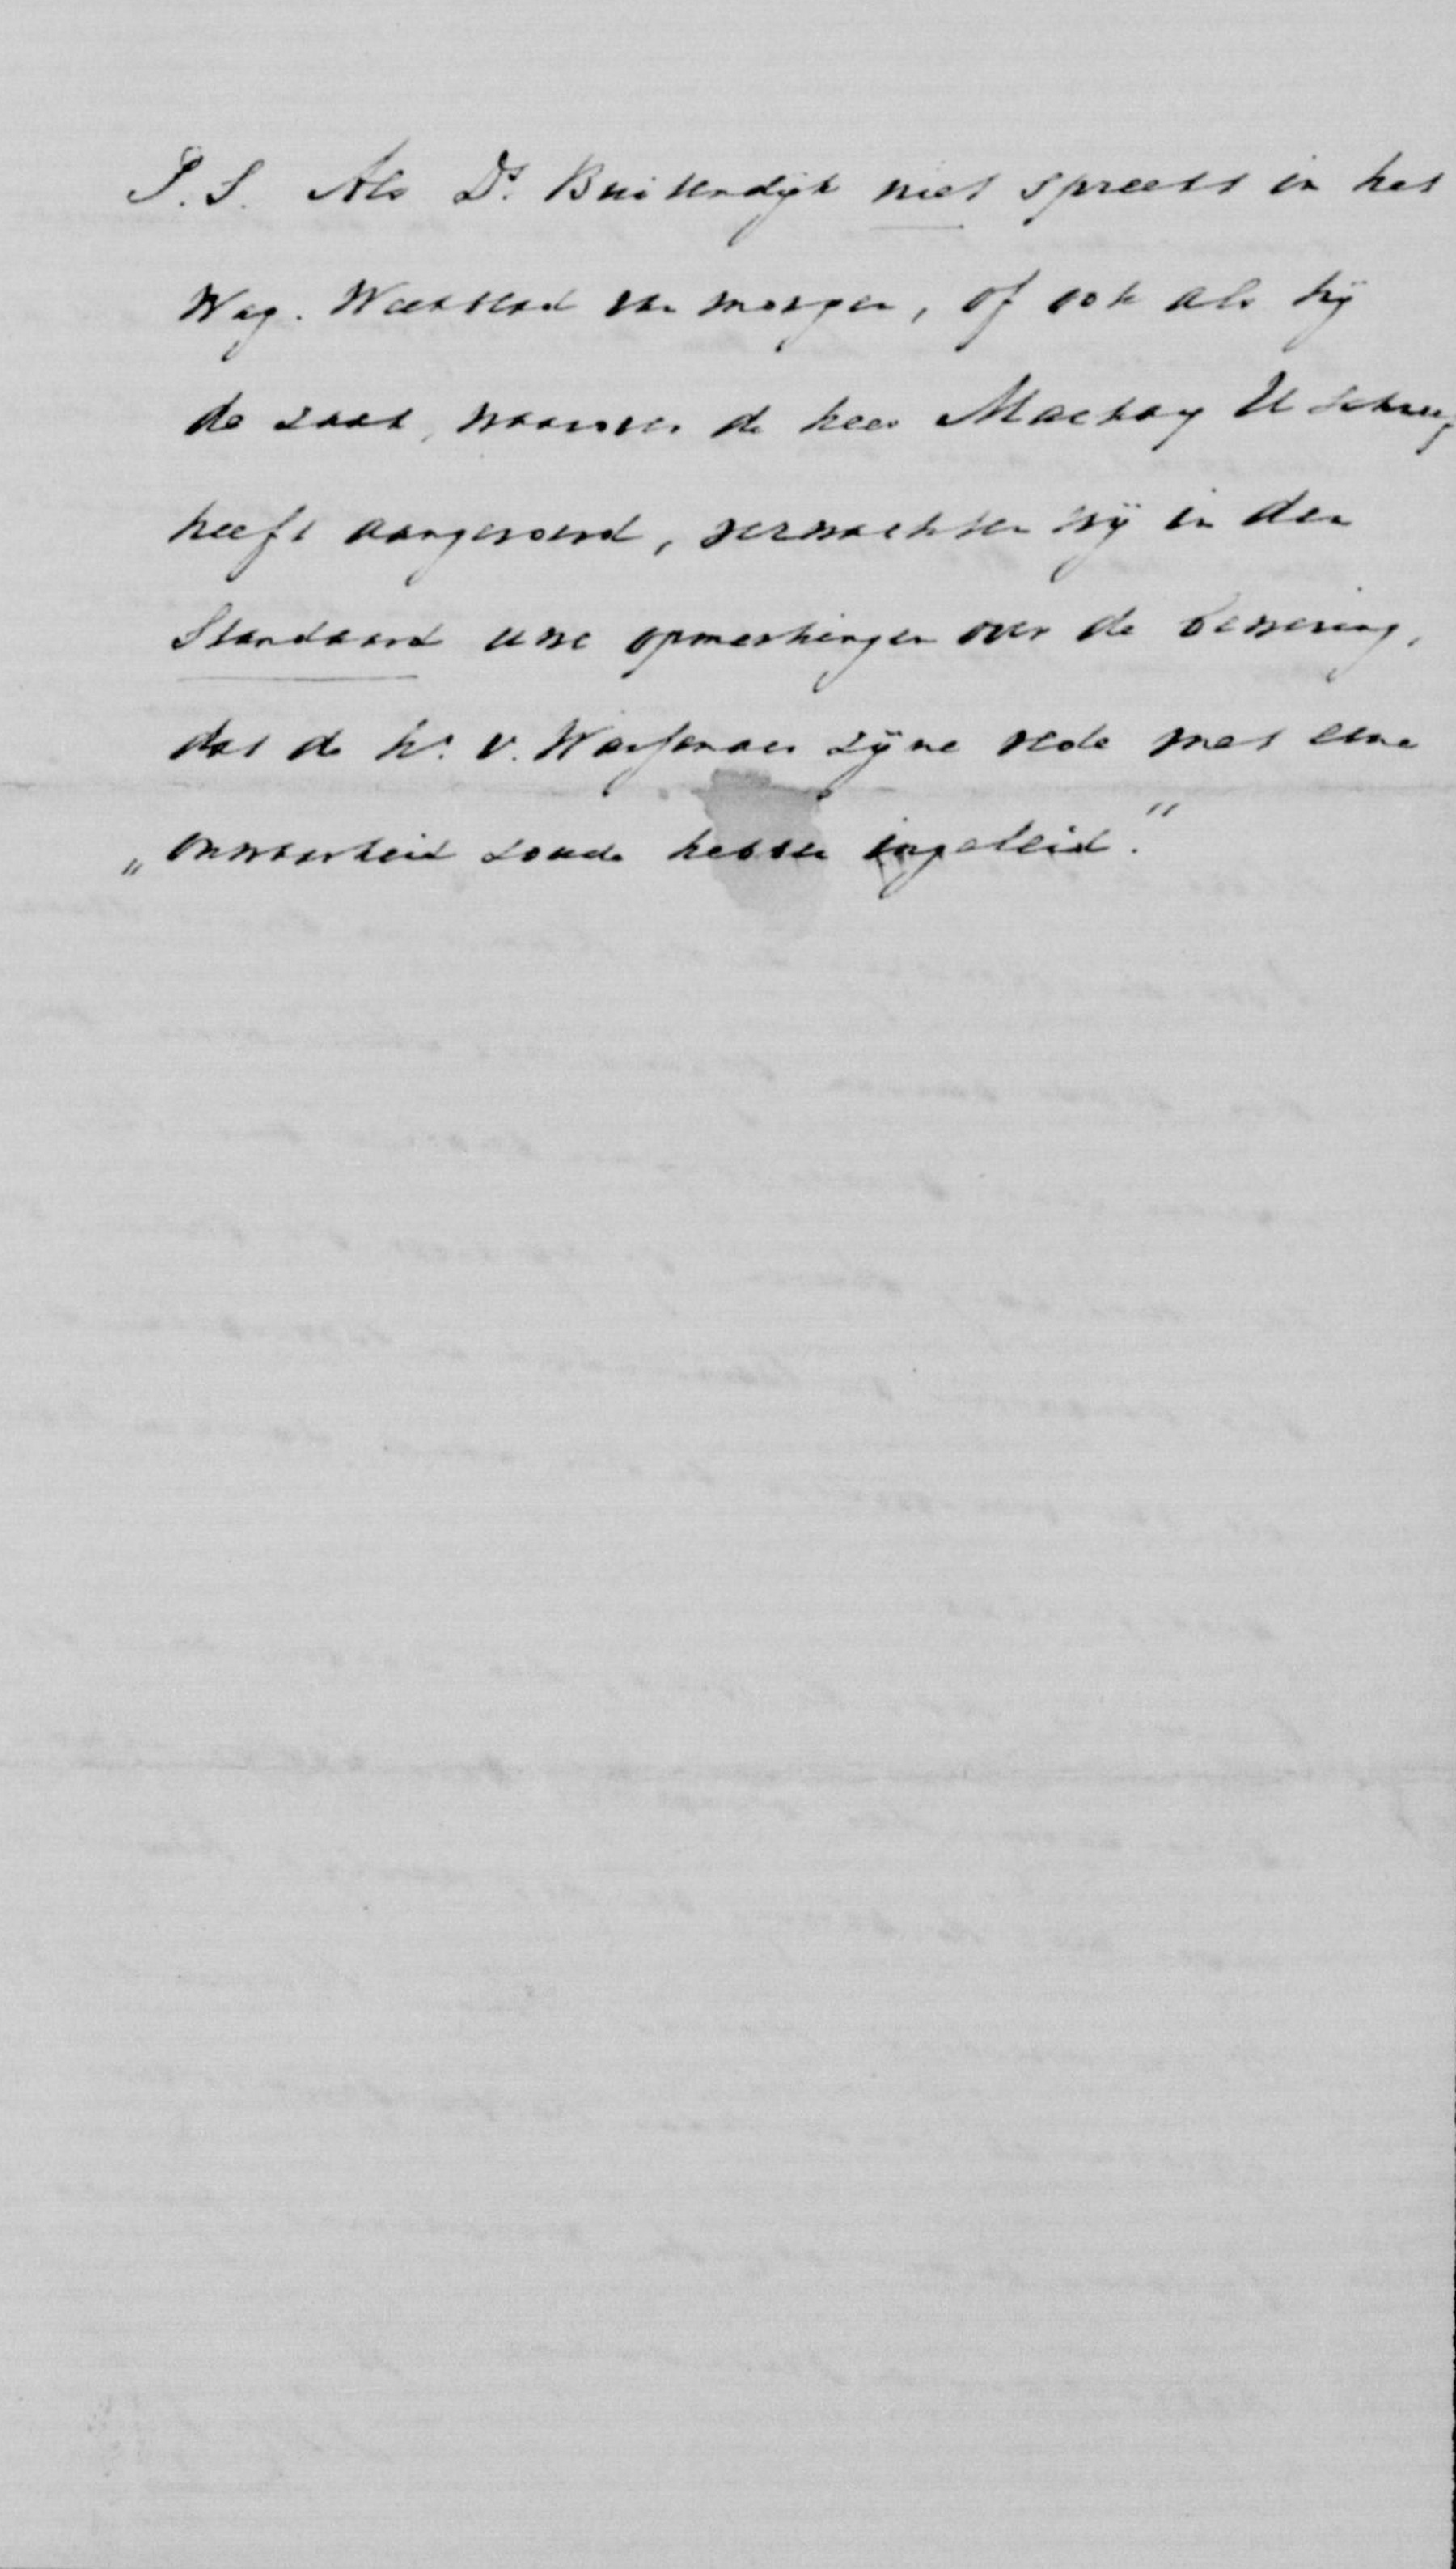 P.S. Als Ds. Buitendijk niet spreekt in het
Wag. Weekblad van morgen, of ook als hij
de zaak, waarover de heer Mackay U schreef
heeft aangeroerd, verwachten wij in den
Standaard uwe opmerkingen over de bewering,
dat de hr. v. Wassenaer zijne rede met eene
„onwaarheid zoude hebben ingeleid."